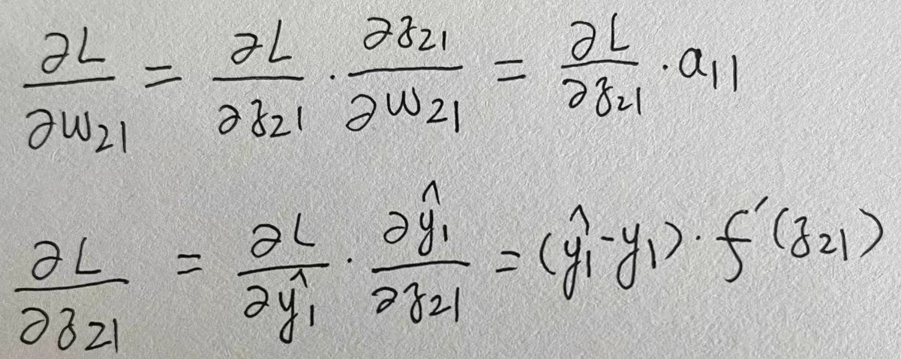 ∂L/∂w₂₁ = ∂L/∂z₂₁ · ∂z₂₁/∂w₂₁ = ∂L/∂z₂₁ · a₁₁
∂L/∂z₂₁ = ∂L/∂ŷ₁ · ∂ŷ₁/∂z₂₁ = (ŷ₁ - y₁) · f′(z₂₁)